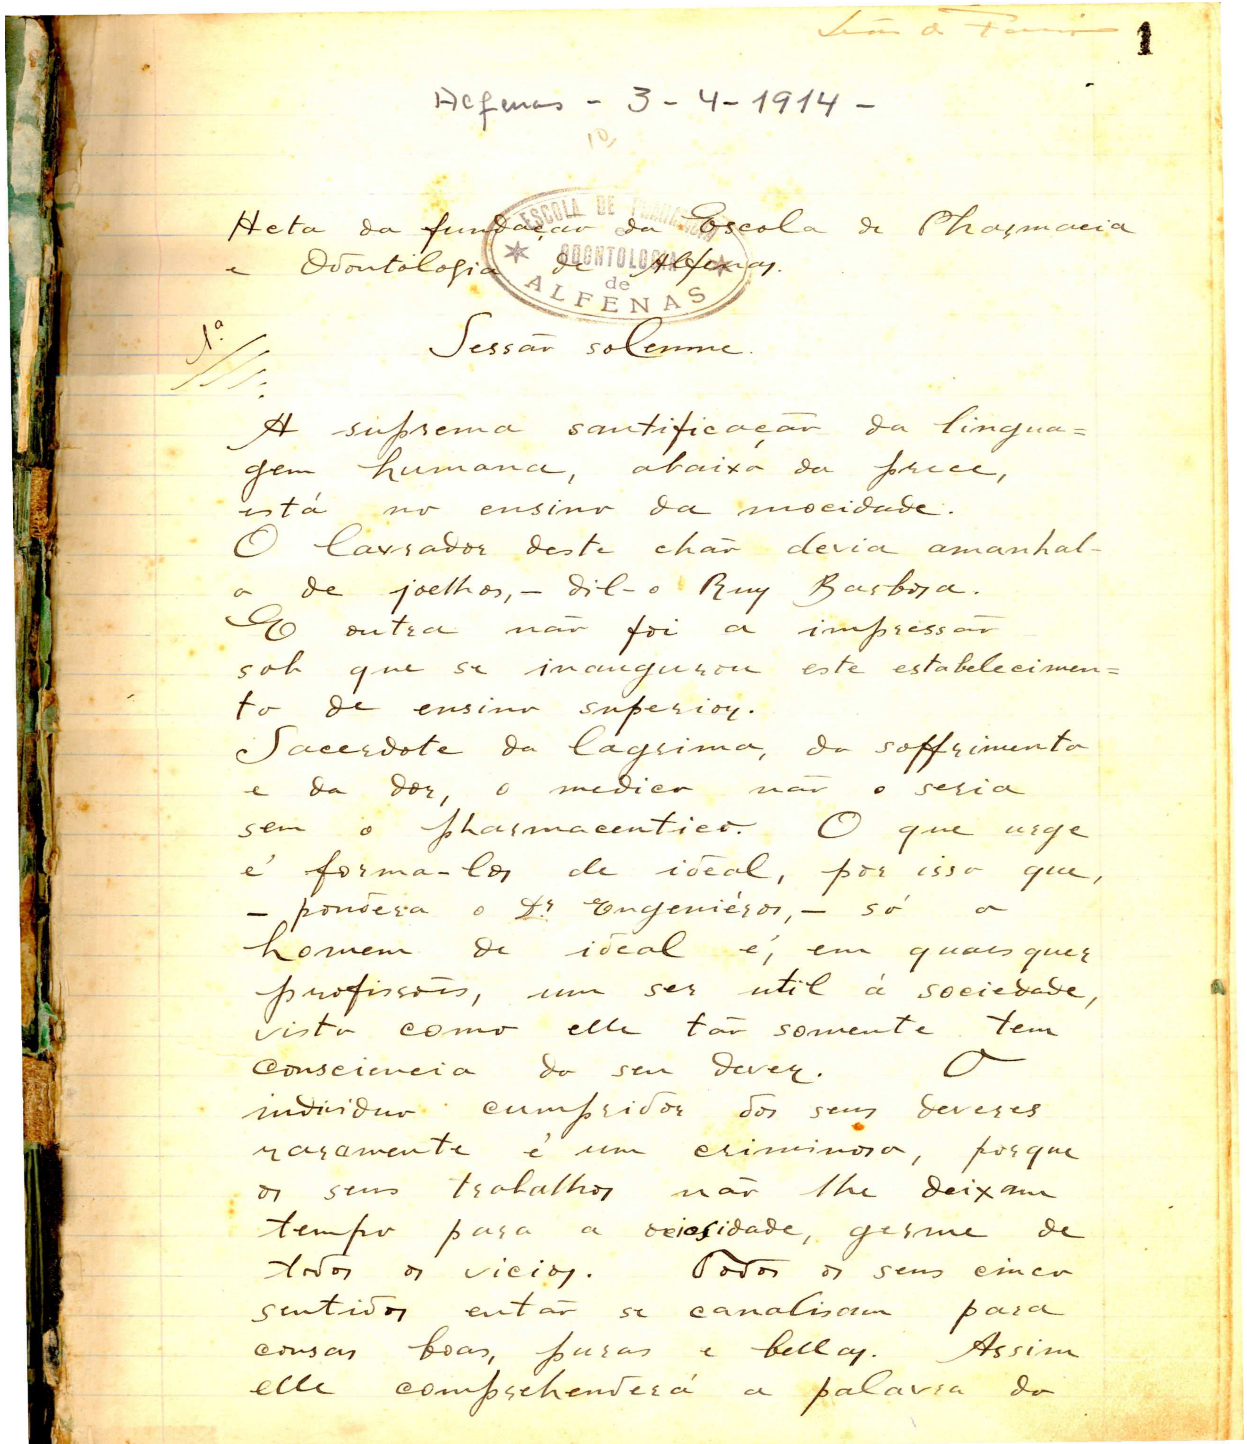 1
Alfenas - 3 - 4 - 1914 -
10,
Acta da fundação da Escola de Pharmacia
e Odontologia de Alfenas.
ESCOLA DE PHARMACIA
E
ODONTOLOGIA
de
ALFENAS
1ª
Sessão solemne.
A suprema santificação da lingua=
gem humana, abaixo da prece,
está no ensino da mocidade.
O lavrador deste chão devia amanhal-
o de joelhos, - dil-o Ruy Barbosa.
E outra não foi a impressão
sob que se inaugurou este estabelecimen=
to de ensino superior.
Sacerdote da lagrima, do soffrimento
e da dor, o medico não o seria
sem o pharmaceutico. O que urge
é forma-los de ideal, por isso que,
- pondera o Dr Engeniéros, - só o
homem de ideal é, em quaesquer
profissões, um ser util á sociedade,
visto como elle tão somente tem
consciencia do seu dever. O
individuo cumpridor dos seus deveres
raramente é um criminoso, porque
os seus trabalhos não lhe deixam
tempo para a ociosidade, germe de
todos os vicios. Todos os seus cinco
sentidos então se canalisam para
cousas boas, puras e bellas. Assim
elle comprehenderá a palavra do